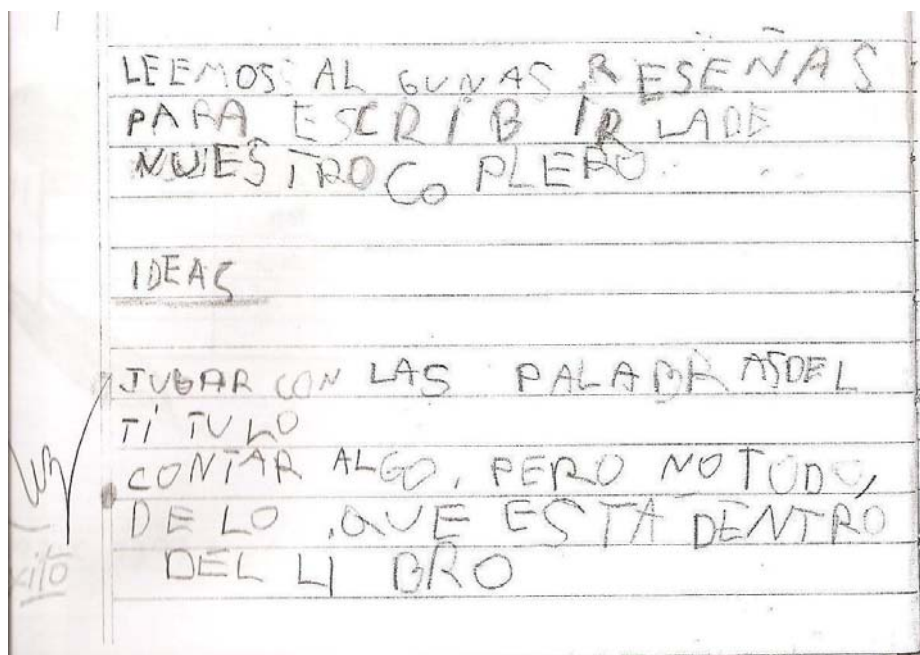 LEEMOS AL GUNAS RESEÑAS
PARA ESCRIBIR LADE
NUESTRO COPLERO.
IDEAS
JUGAR CON LAS PALABRASDEL
TÍ TULO
CONTAR ALGO, PERO NO TODO,
DE LO QUE ESTA DENTRO
DEL LI BRO